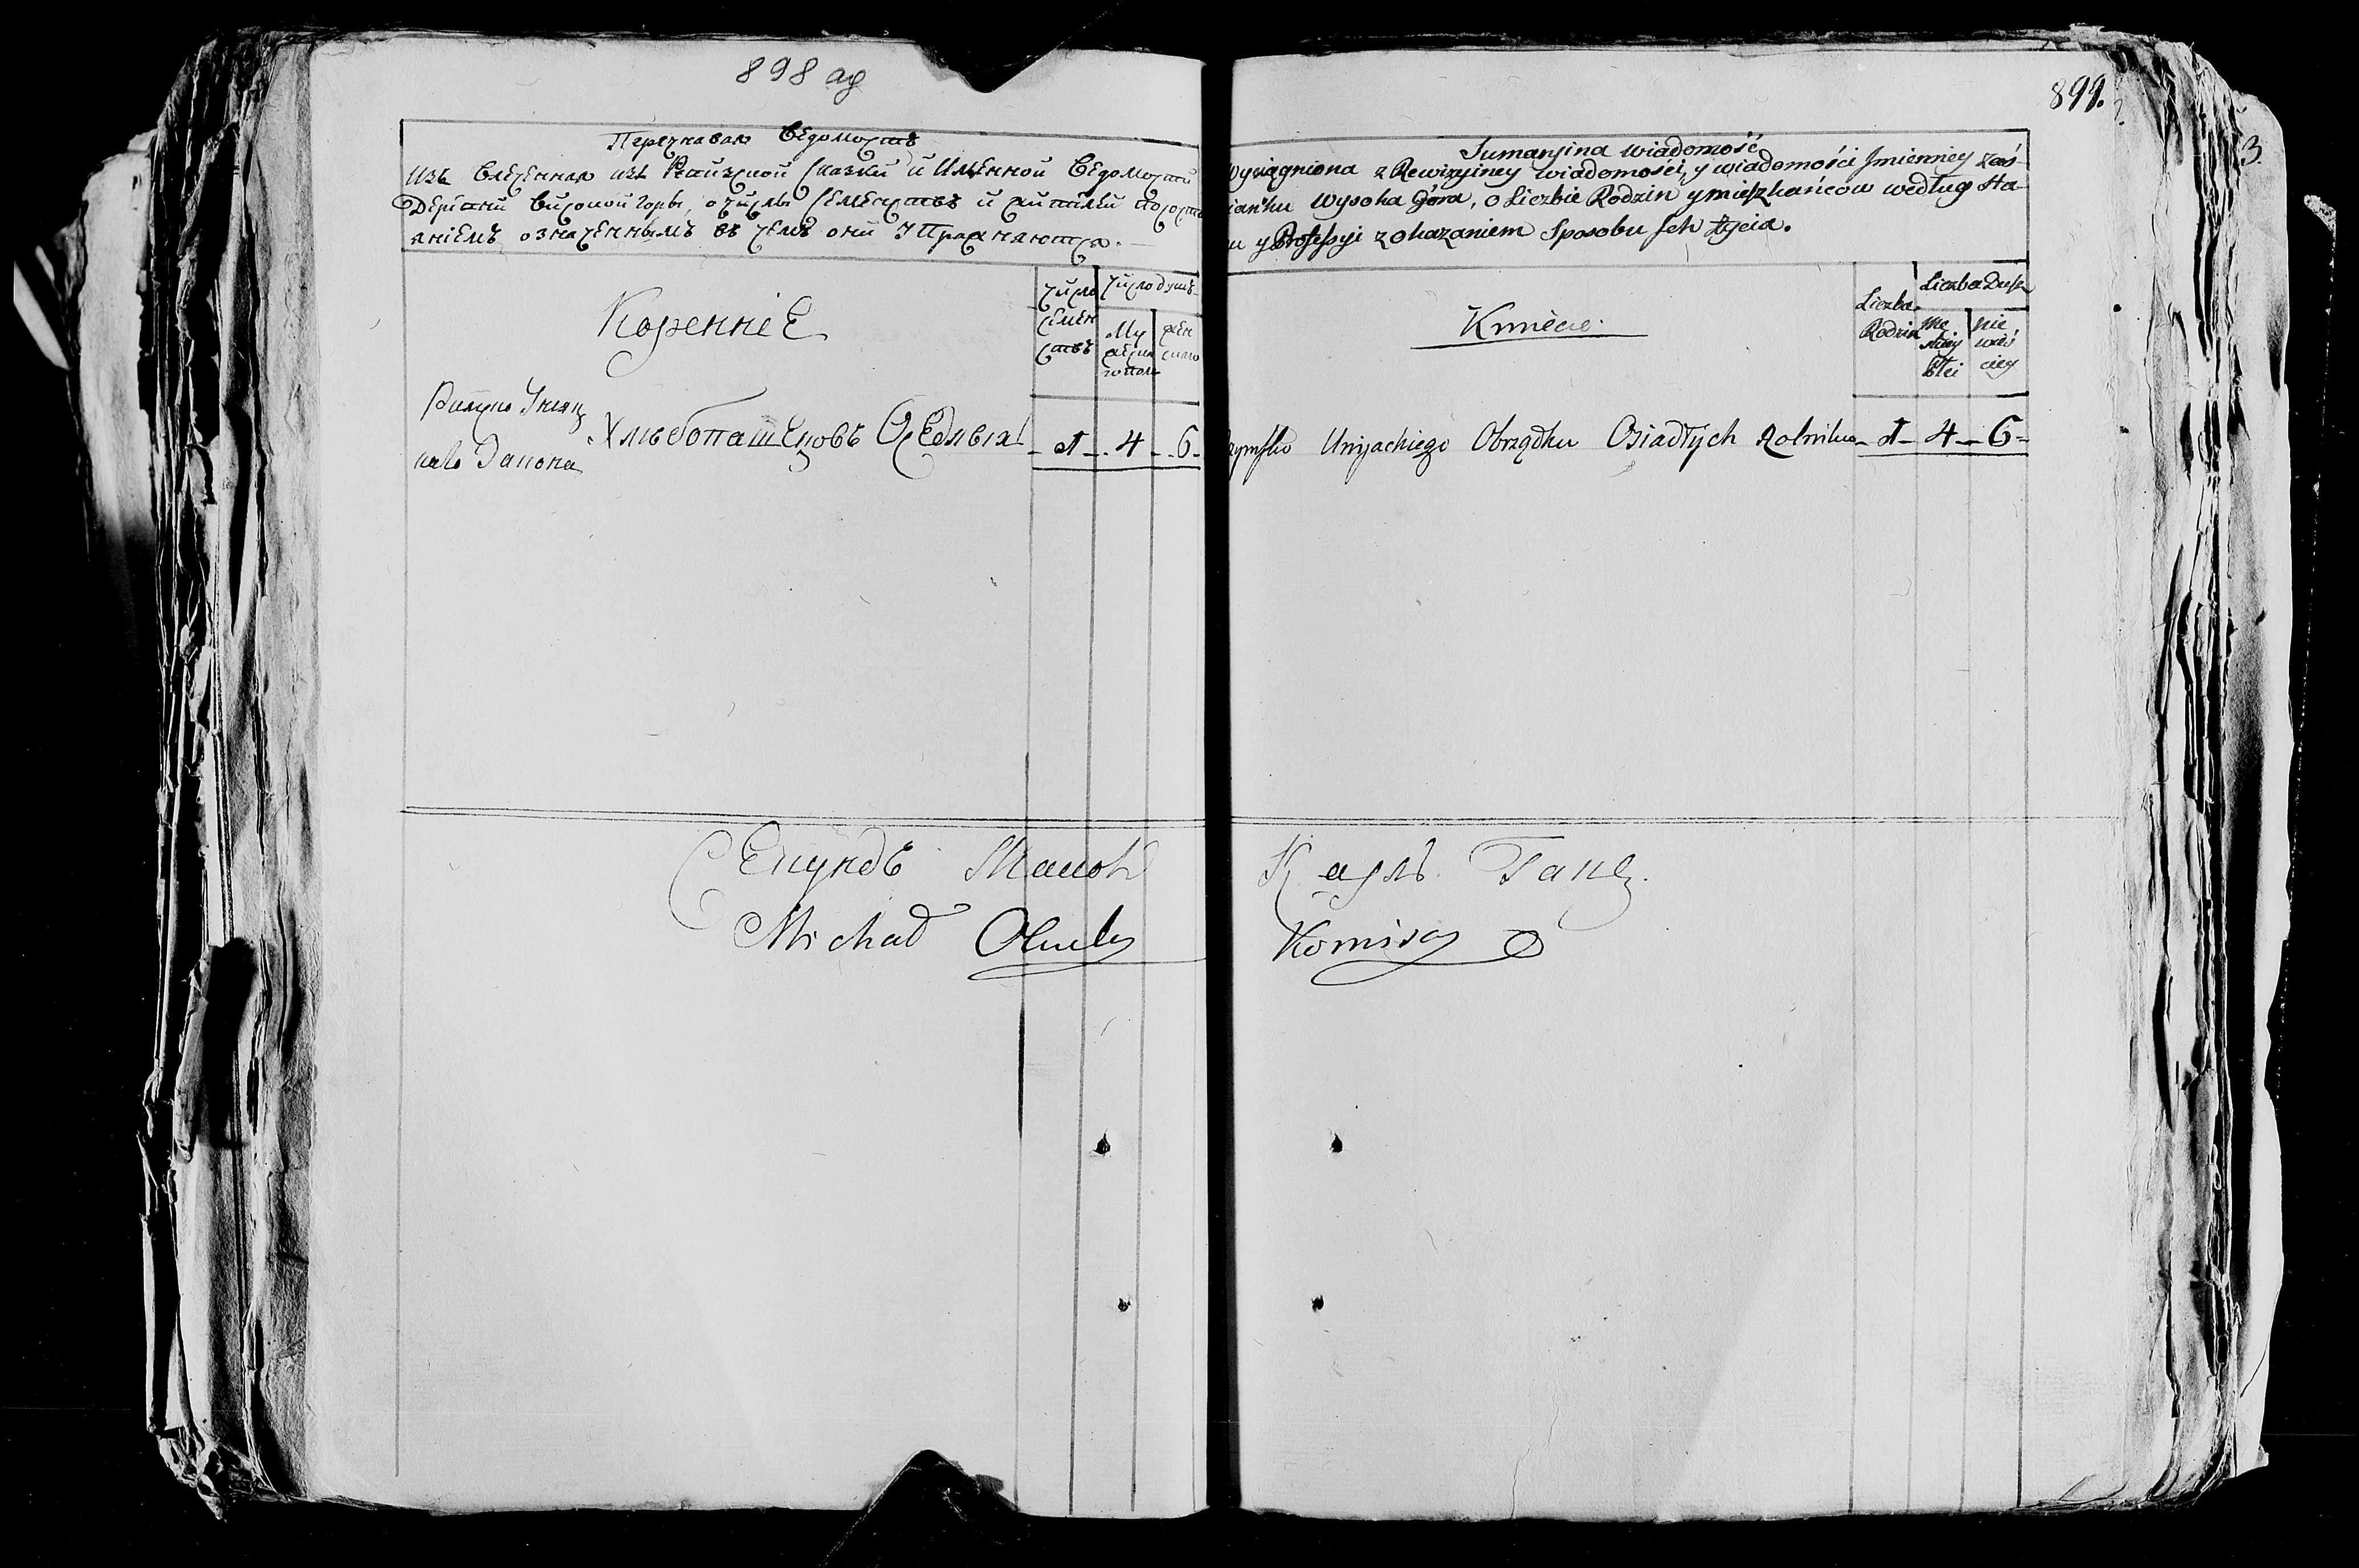 898 об
Перечневая Ведомость
Извлеченная изъ Ревизской Сказки и Именной Ведомости
Деревни Високой Горы, о числе Семействъ и жителей по состо
яніемъ означеннымъ въ чемъ они Упражняются.
Кореннiе
число семействъ
число душъ
Мужеска полу
женскаго
Римско Унияцкаго Закона Хлебопашцовъ Оседлыхъ 1 4 6
Секундъ Маіоръ
Michał
899.
3.
Sumaryina wiadomość
Wyciągniona z Rewizyiney wiadomości, y wiadomości Jmienney Zaś-
cianku Wysoka Góra, o Liczbie Rodzin y mieszkańców według Sta-
nu y Professyi z okazaniem Sposobu Jch życia.
Kmiecie.
Liczba Rodzin
Liczba Dusz
męskiey płci
niewieściey
Rzymsko Uniyackiego Obrządku Osiadłych Rolnikow 1 4 6
Карлъ
Komisarz